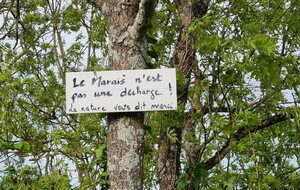 Le Marais n'est
pas une décharge !
La nature vous dit merci